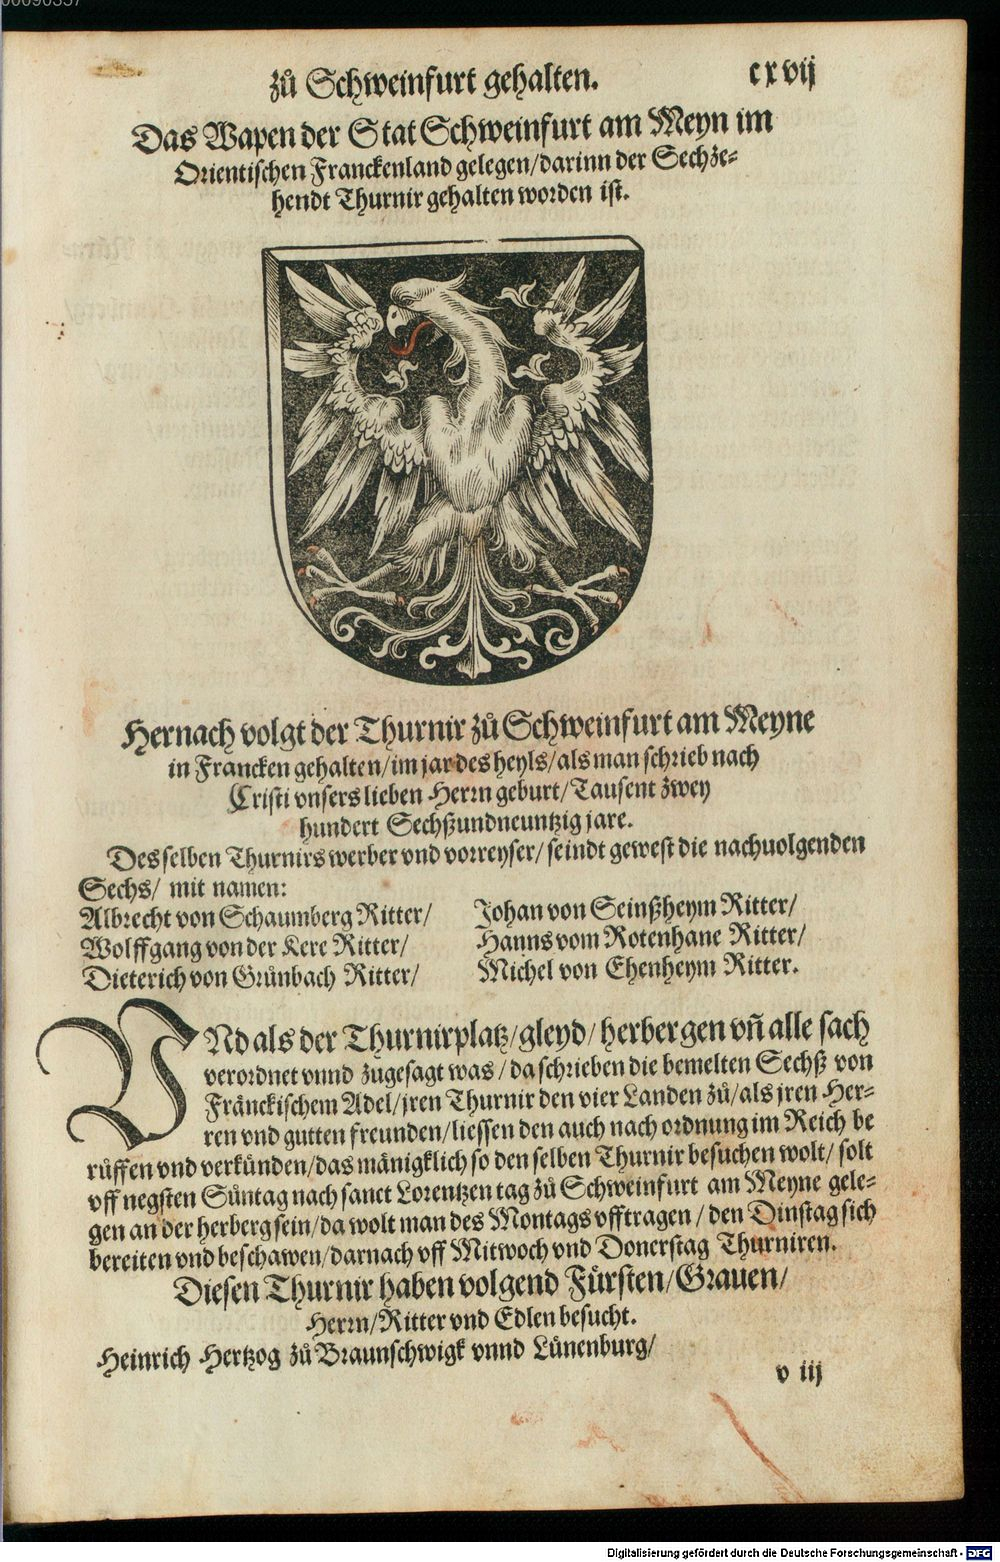 zů Schweinfurt gehalten. cxvij
Das Wapen der Stat Schweinfurt am Meyn im
Orientischen Franckenland gelegen/darinn der Sechze=
hendt Thurnir gehalten worden ist.
Hernach volgt der Thurnir zů Schweinfurt am Meyne
in Francken gehalten/im jar des heyls/als man schrieb nach
Cristi vnsers lieben Herrn geburt/Tausent zwey
hundert Sechßundneuntzig jare.
Desselben Thurnirs werber vnd vorreyser/seindt gewest die nachuolgenden
Sechs/ mit namen:
Albrecht von Schaumberg Ritter/
Wolffgang von der Kere Ritter/
Dieterich von Grůnbach Ritter/
Johan von Seinßheym Ritter/
Hanns vom Rotenhane Ritter/
Michel von Ehenheym Ritter.
VNd als der Thurnirplatz/gleyd/herbergen vñ alle sach
verordnet vnnd zugesagt was/da schrieben die bemelten Sechß von
Fränckischem Adel/jren Thurnir den vier Landen zů/als jren Her=
ren vnd gutten freunden/liessen den auch nach ordnung im Reich be
růffen vnd verkůnden/das mänigklich so den selben Thurnir besuchen wolt/ solt
vff negsten Sůntag nach sanct Lorentzen tag zů Schweinfurt am Meyne gele=
gen an der herberg sein/da wolt man des Montags vfftragen/den Dinstag sich
bereiten vnd beschawen/darnach vff Mitwoch vnd Donerstag Thurniren.
Diesen Thurnir haben volgend Fůrsten/Grauen/
Herrn/Ritter vnd Edlen besucht.
Heinrich Hertzog zů Braunschwigk vnnd Lůnenburg/
v iij
Digitalisierung gefördert durch die Deutsche Forschungsgemeinschaft - DFG